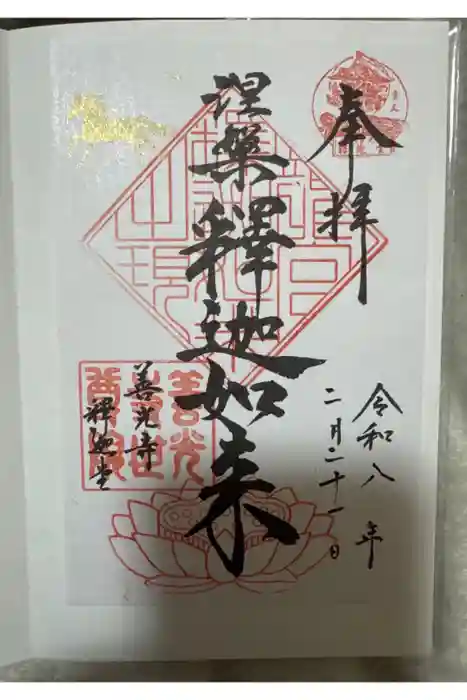 奉拝
令和八年
二月二十一日
涅槃釋迦如来
善光寺
釋迦堂